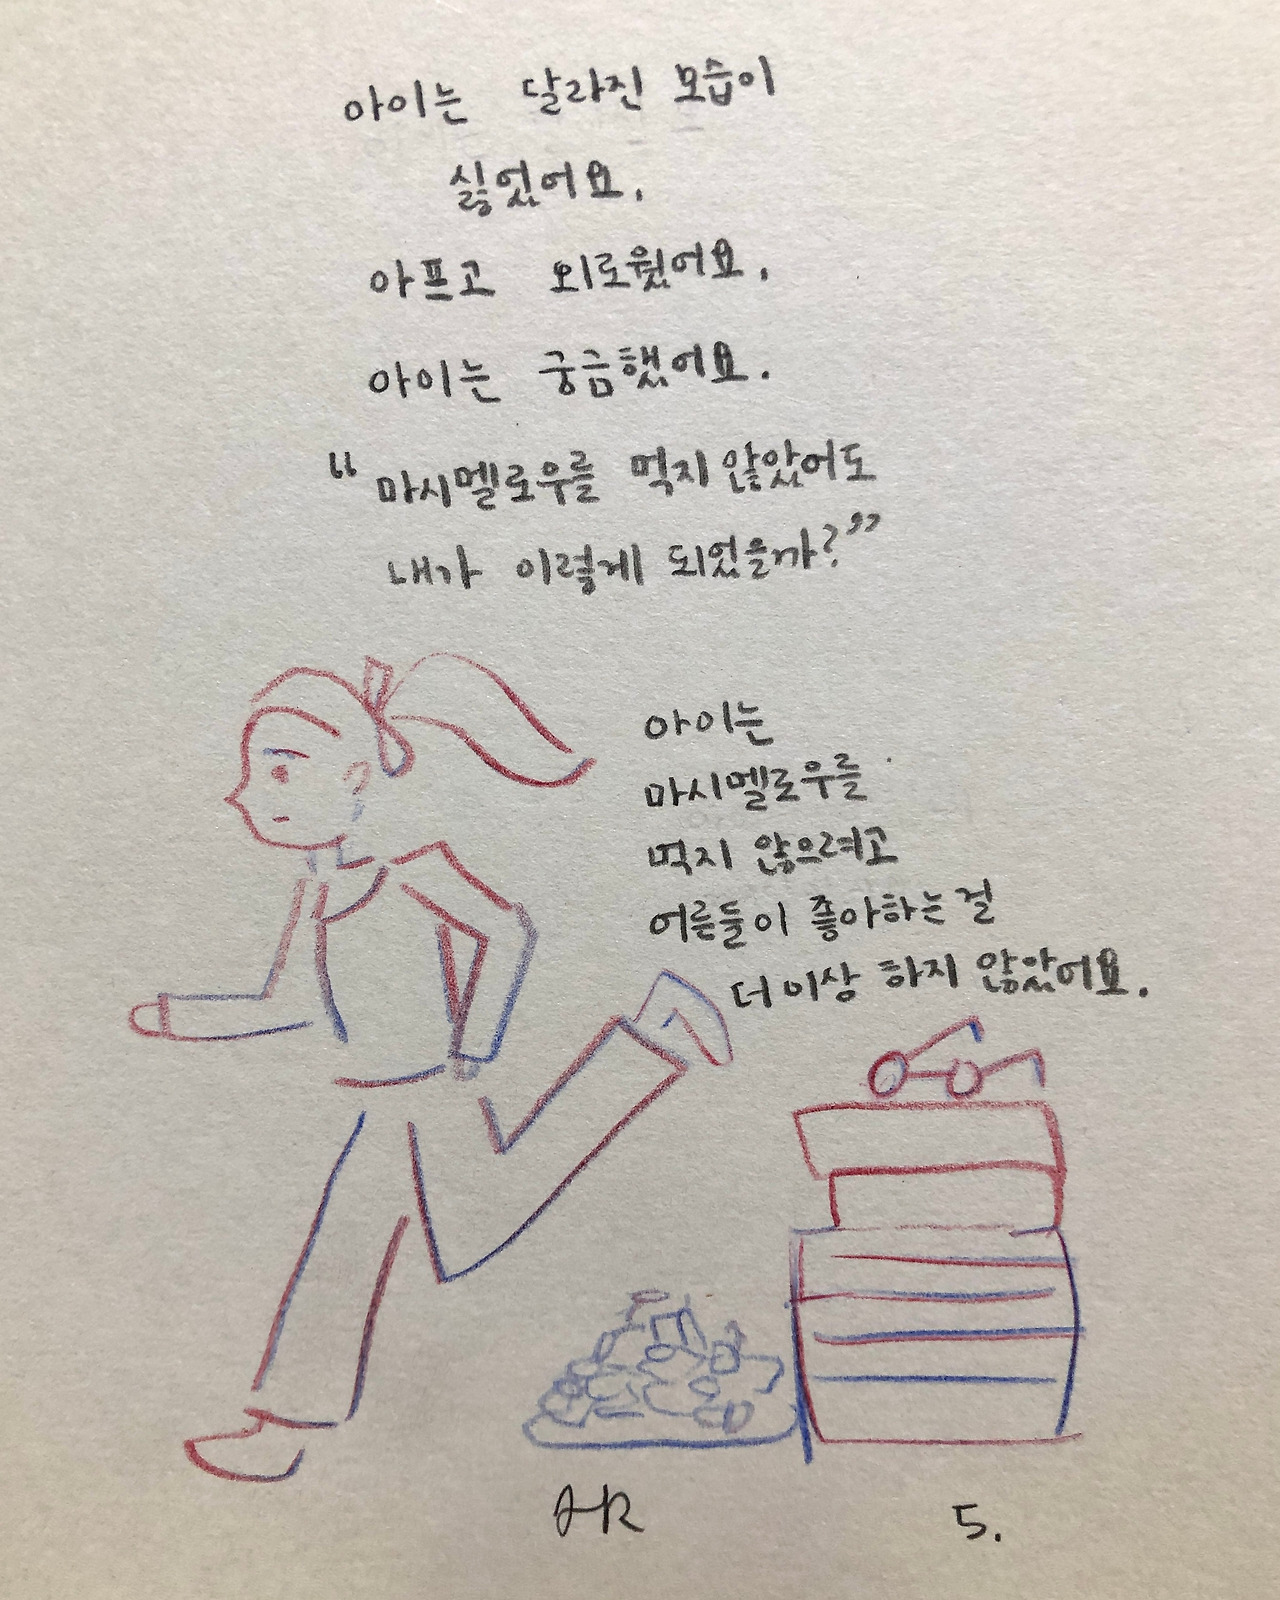 아이는 달라진 모습이
싫었어요.
아프고 외로웠어요.
아이는 궁금했어요.
“마시멜로우를 먹지 않았어도
내가 이렇게 되었을까?”
아이는
마시멜로우를
먹지 않으려고
어른들이 좋아하는 걸
더 이상 하지 않았어요.
5.